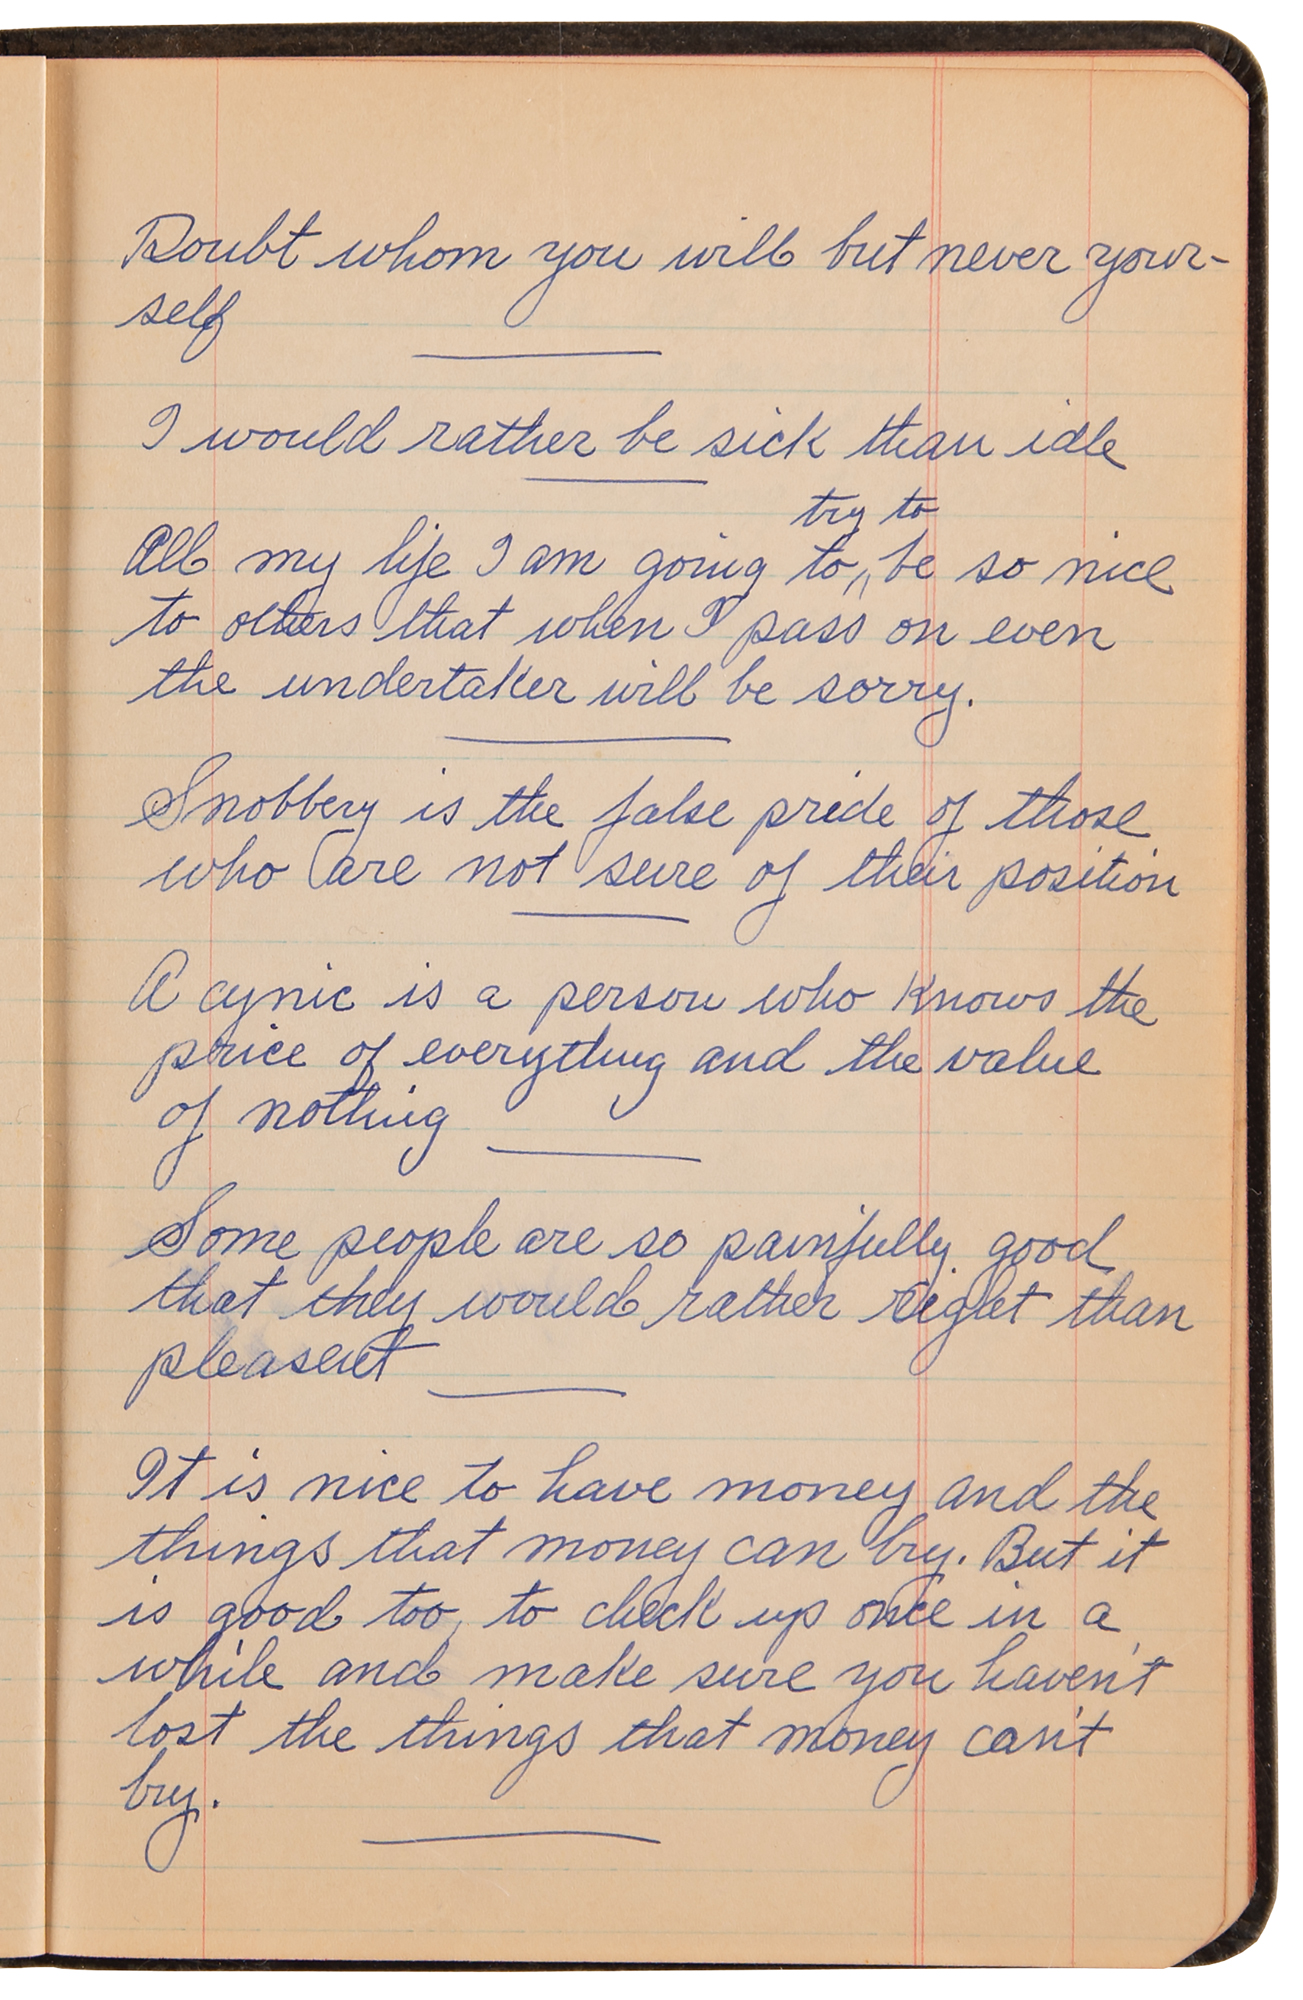 Doubt whom you will but never your-
self
I would rather be sick than idle
try to
All my life I am going to,, be so nice
to others that when I pass on even
the undertaker will be sorry.
Snobbery is the false pride of those
who are not sure of their position
A cynic is a person who knows the
price of everything and the value
of nothing
Some people are so painfully good
that they would rather right than
pleasent
It is nice to have money and the
things that money can buy. But it
is good too, to check up once in a
while and make sure you haven't
lost the things that money can't
buy.